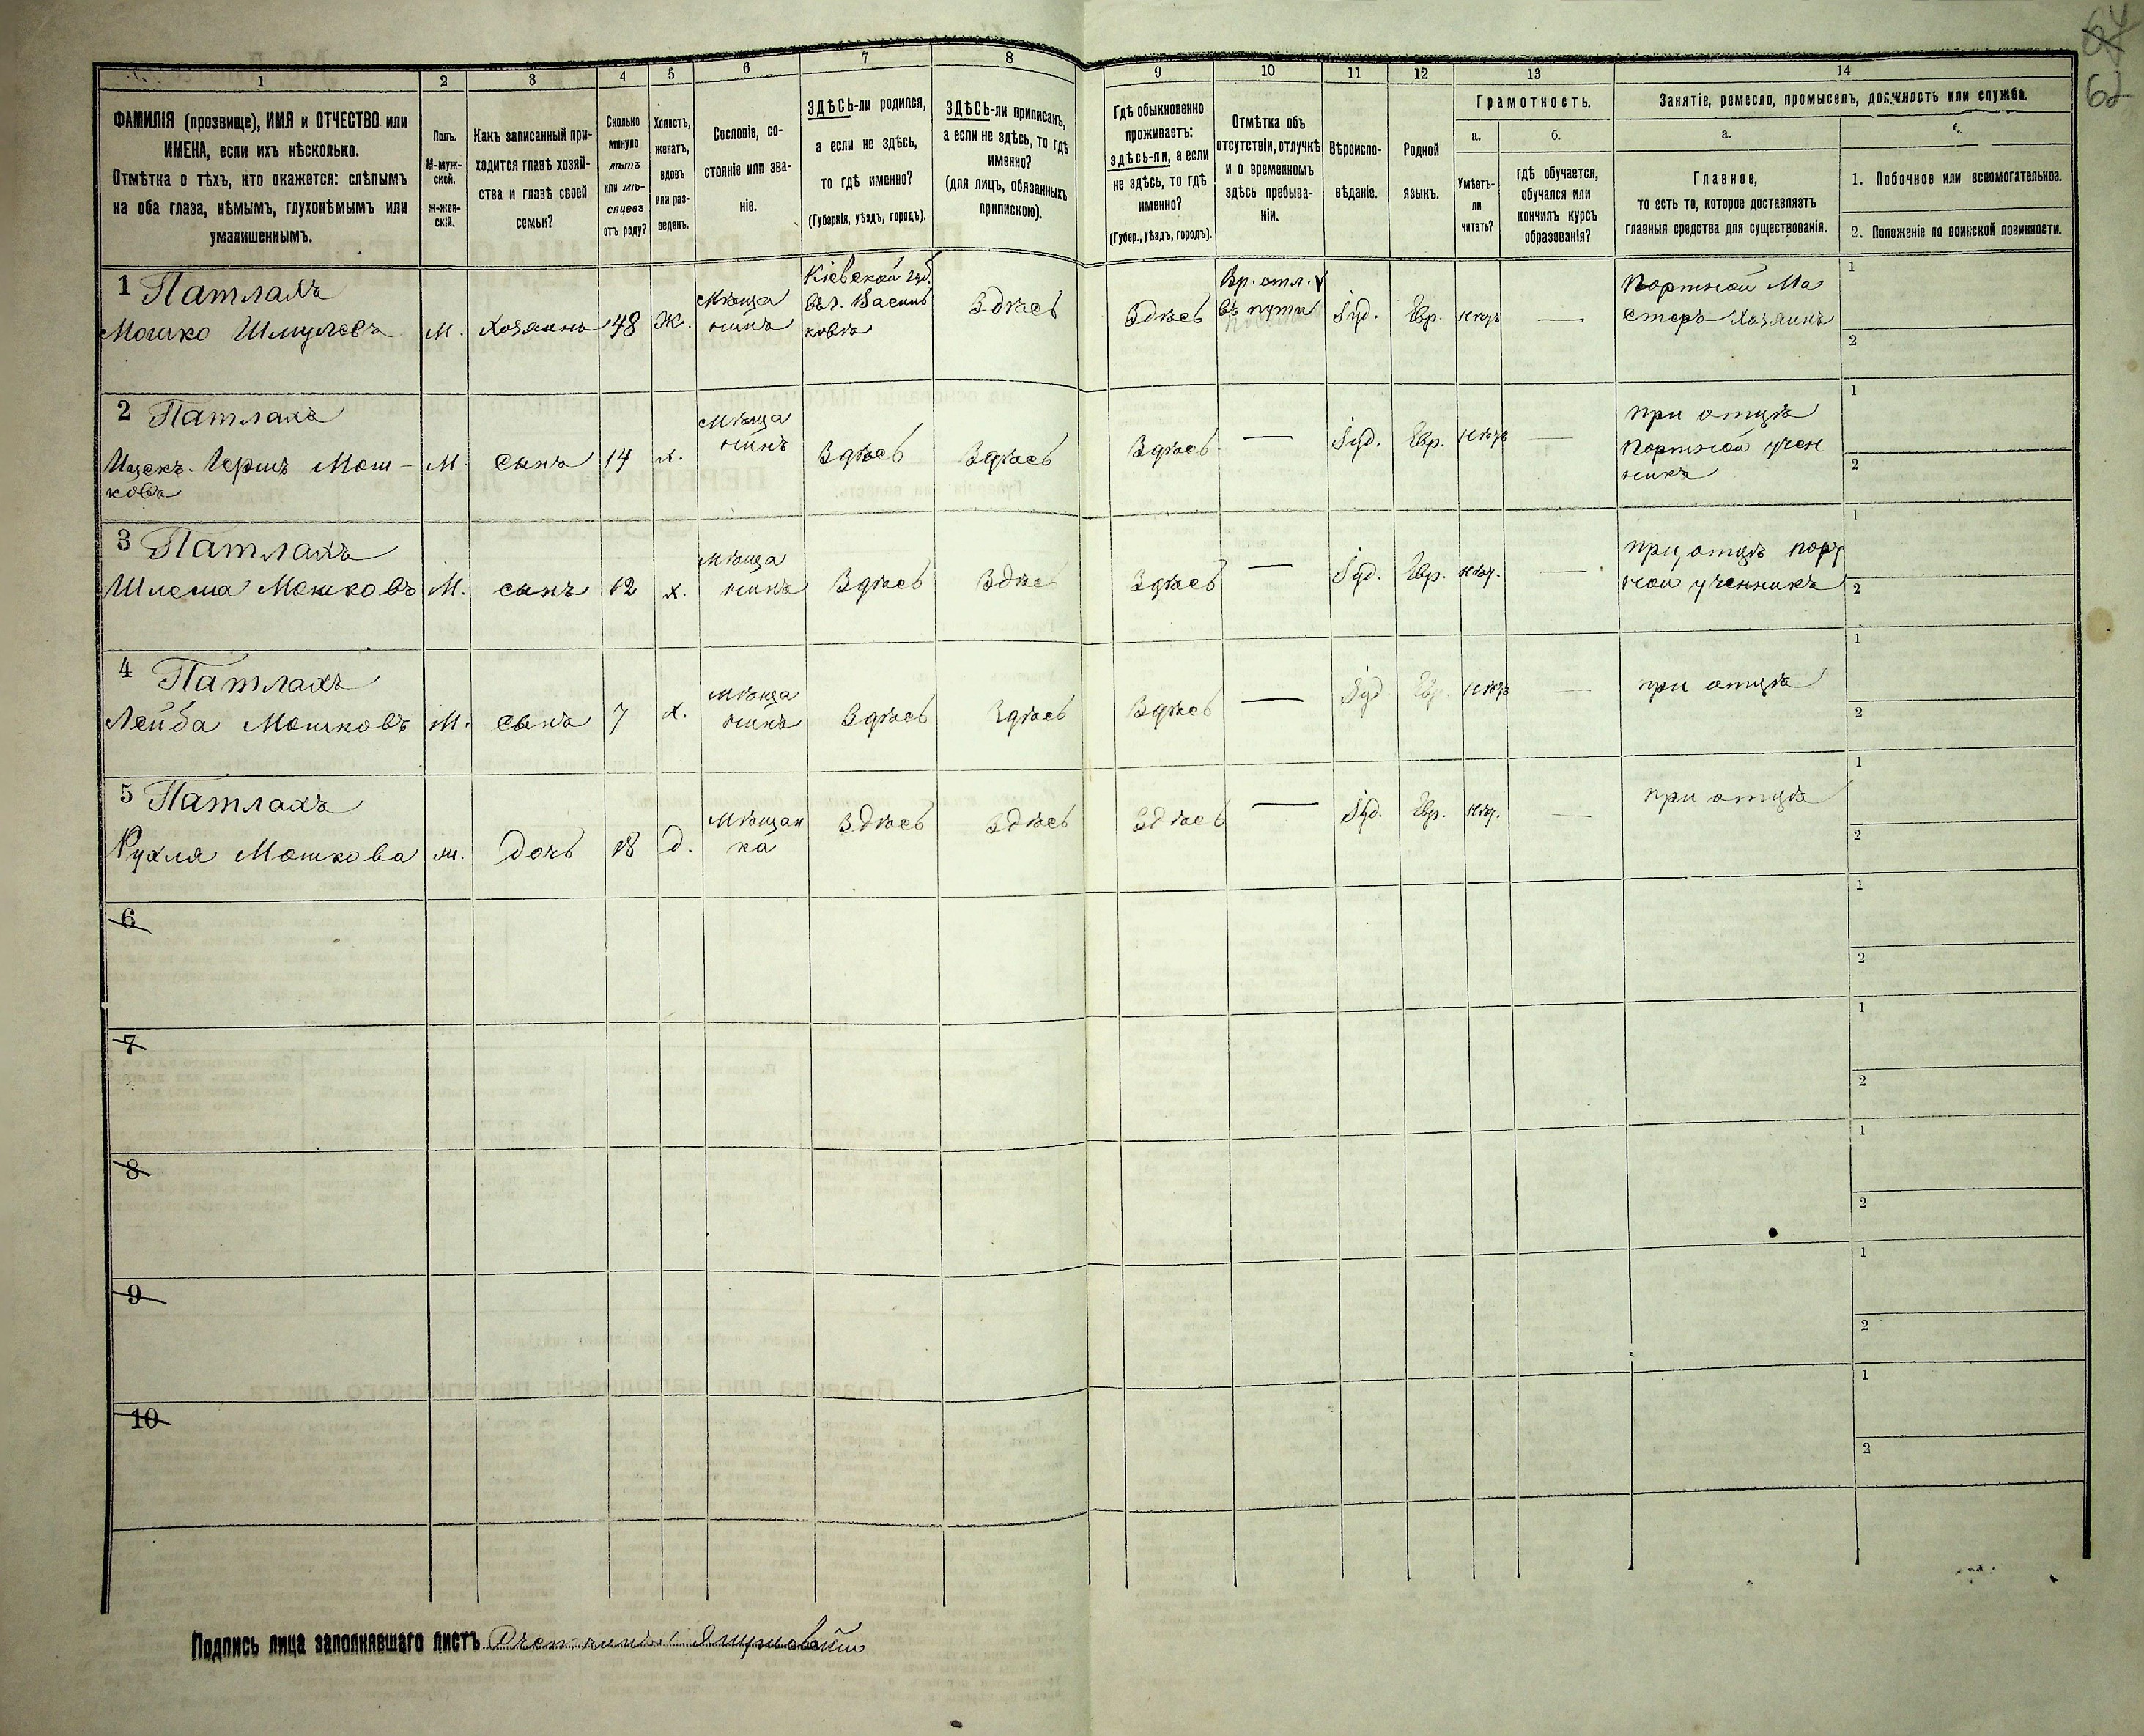 64
62
1
2
3
4
5
6
7
8
9
10
11
12
13
14
ФАМИЛІЯ (прозвище), ИМЯ и ОТЧЕСТВО или
ИМЕНА, если ихъ нѣсколько.
Отмѣтка о тѣхъ, кто окажется: слѣпымъ
на оба глаза, нѣмымъ, глухонѣмымъ или
умалишеннымъ.
Полъ.
М-муж-
ской.
Ж-жен-
скій.
Какъ записанный при-
ходится главѣ хозяй-
ства и главѣ своей
семьи?
Сколько
минуло
лѣтъ
или мѣ-
сяцевъ
отъ роду?
Холостъ,
женатъ,
вдовъ
или раз-
веденъ.
Сословіе, со-
стояніе или зва-
ніе.
ЗДѢСЬ-ли родился,
а если не здѣсь,
то гдѣ именно?
(Губернія, уѣздъ, городъ).
ЗДѢСЬ-ли приписанъ,
а если не здѣсь, то гдѣ
именно?
(для лицъ, обязанныхъ
припискою).
Гдѣ обыкновенно
проживаетъ:
здѣсь-ли, а если
не здѣсь, то гдѣ
именно?
(Губер., уѣздъ, городъ).
Отмѣтка объ
отсутствіи, отлучкѣ
и о временномъ
здѣсь пребыва-
ніи.
Вѣроиспо-
вѣданіе.
Родной
языкъ.
Грамотность.
а.
Умѣетъ-
ли
читать?
б.
гдѣ обучается,
обучался или
кончилъ курсъ
образованія?
Занятіе, ремесло, промыселъ, должность или служба.
а.
Главное,
то есть то, которое доставляетъ
главныя средства для существованія.
1. Побочное или вспомогательное.
2. Положеніе по воинской повинности.
1 Патлахъ
Мошко Шмулевъ
М.
Хозяинъ
48
Ж.
Мѣща
нинъ
Кіевской губ.
въ г. Василь
ковѣ
Здѣсь
Здѣсь
Вр. отл.
въ пути
Іуд.
Евр.
нѣтъ
—
Портной Ма
стеръ Хозяинъ
1
2
2 Патлахъ
Ицекъ-Гершъ Мош-
ковъ
М.
сынъ
14
х.
Мѣща
нинъ
Здѣсь
Здѣсь
Здѣсь
—
Іуд.
Евр.
нѣтъ
—
при отцѣ
Портной учен
никъ
1
2
3 Патлахъ
Шлема Мошковъ
М.
сынъ
12
х.
Мѣща
нинъ
Здѣсь
Здѣсь
Здѣсь
—
Іуд.
Евр.
нѣт.
—
при отцѣ порт
ной ученникъ
1
2
4 Патлахъ
Лейба Мошковъ
М.
сынъ
7
х.
Мѣща
нинъ
Здѣсь
Здѣсь
Здѣсь
—
Іуд
Евр.
нѣтъ
—
при отцѣ
1
2
5 Патлахъ
Рухля Мошкова
ж.
Дочь
18
д.
Мѣщан
ка
Здѣсь
Здѣсь
Здѣсь
—
Іуд.
Евр.
нѣт.
—
при отцѣ
1
2
6
1
2
7
1
2
8
1
2
9
1
2
10
1
2
Подпись лица заполнявшаго листъ